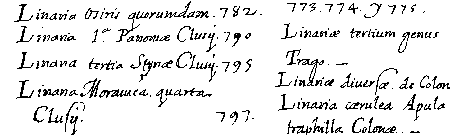 Linaria Osiris quorumdam. 782.
Linaria 1.ª Panonæ Clusij. 790
Linaria tertia Styriæ Clusij. 795
Linaria Moravica quarta
Clusij. 797.
773. 774. y 775.
Linariæ tertium genus
Trago. —
Linariæ diversæ de Colon
Linaria cærulea Apula
traphilla Colonæ. —